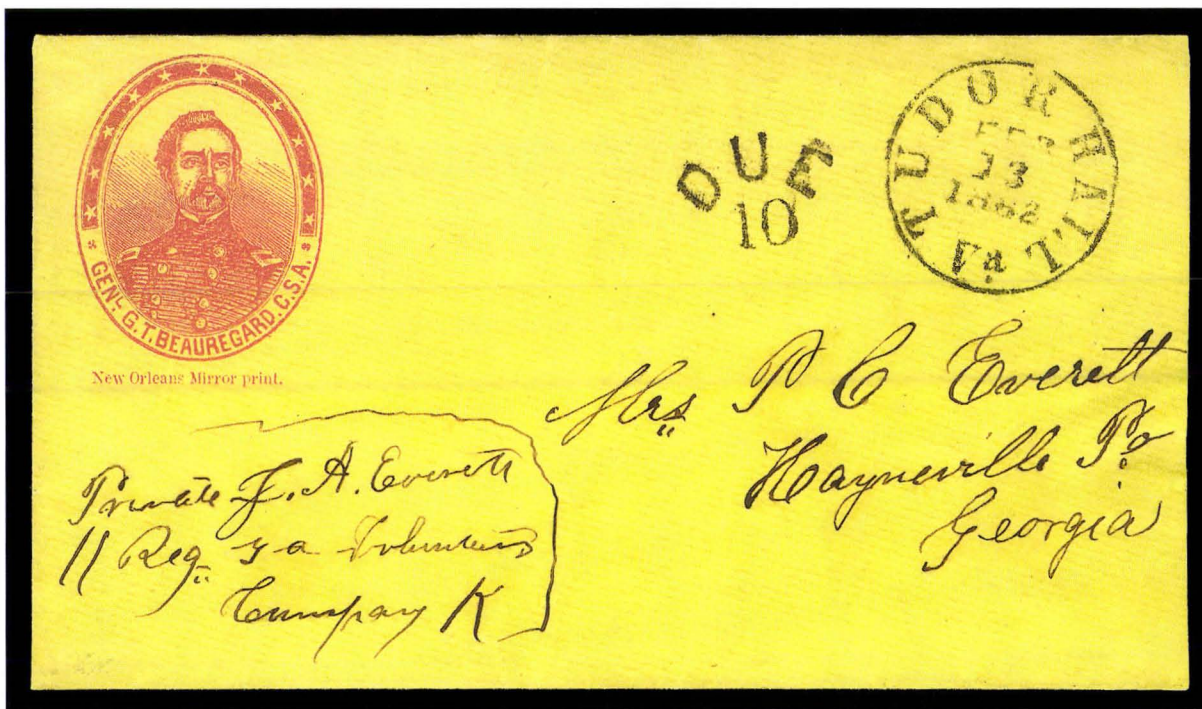 GENL G.T. BEAUREGARD. C.S.A.
New Orleans Mirror print.
DUE
10
TUDOR HALL Va
FEB
13
1862
Mrs P C Everett
Hayneville Po
Georgia
Private J. A. Everett
11 Reg Ga Volunteers
Company K